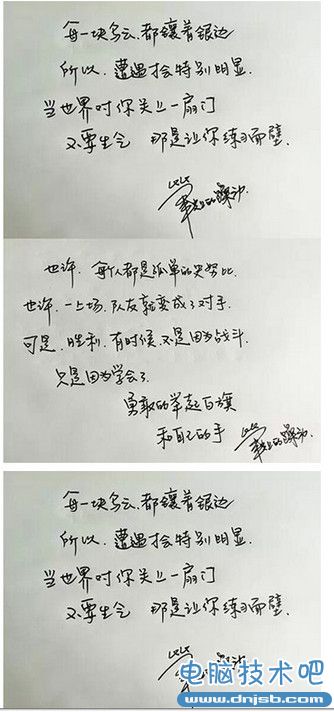 每一块乌云,都镶着银边
所以,遭遇才会特别明显.
当世界对你关上一扇门
不要生气 那是让你练习面壁.
也许,每个人都是孤单的史努比
也许,一上场,队友就变成了对手
可是,胜利,有时候,不是因为战斗
只是因为学会了
勇敢的举起白旗
和自己的手
每一块乌云,都镶着银边
所以,遭遇才会特别明显.
当世界对你关上一扇门
不要生气 那是让你练习面壁.
电脑技术吧
www.dnjsb.com